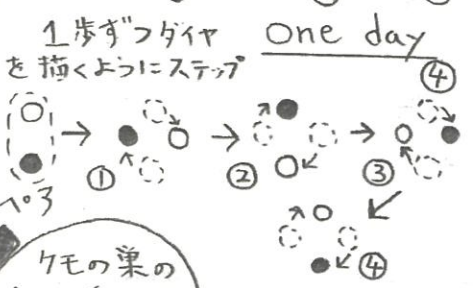 1歩ずつダイヤ
を描くようにステップ
One day
④
①
②
③
ペア
④
クモの巣の